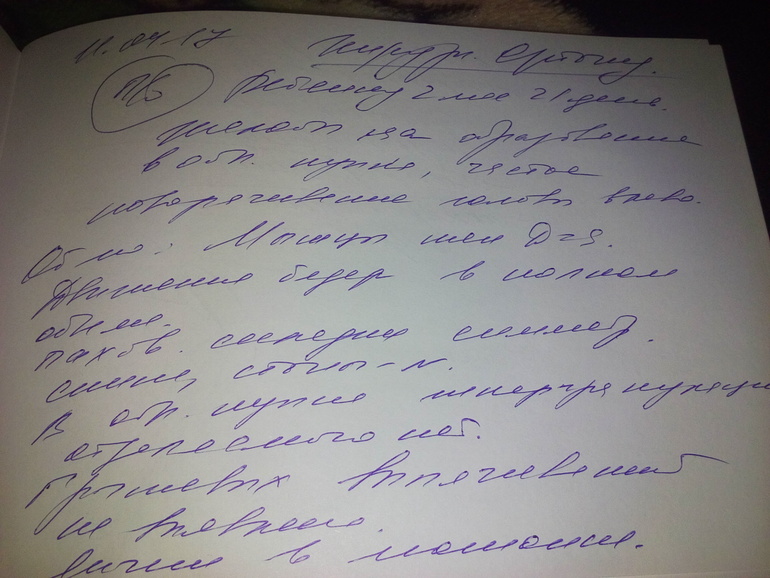 11.04-17 Хирург. Ортопед.
П/О Ребенку 2 мес 21 день.
Жалобы на образование
в обл. пупка, частое
поворачивание головы влево.
Об-но: Мышцы шеи D=S.
Движения бедер в полном
объеме.
пахов. складки симметр.
спина, стопы - N.
В обл. пупка гипергрануляция
отделяемого нет.
Грыжевых выпячиваний
не выявлено.
Яички в мошонке.